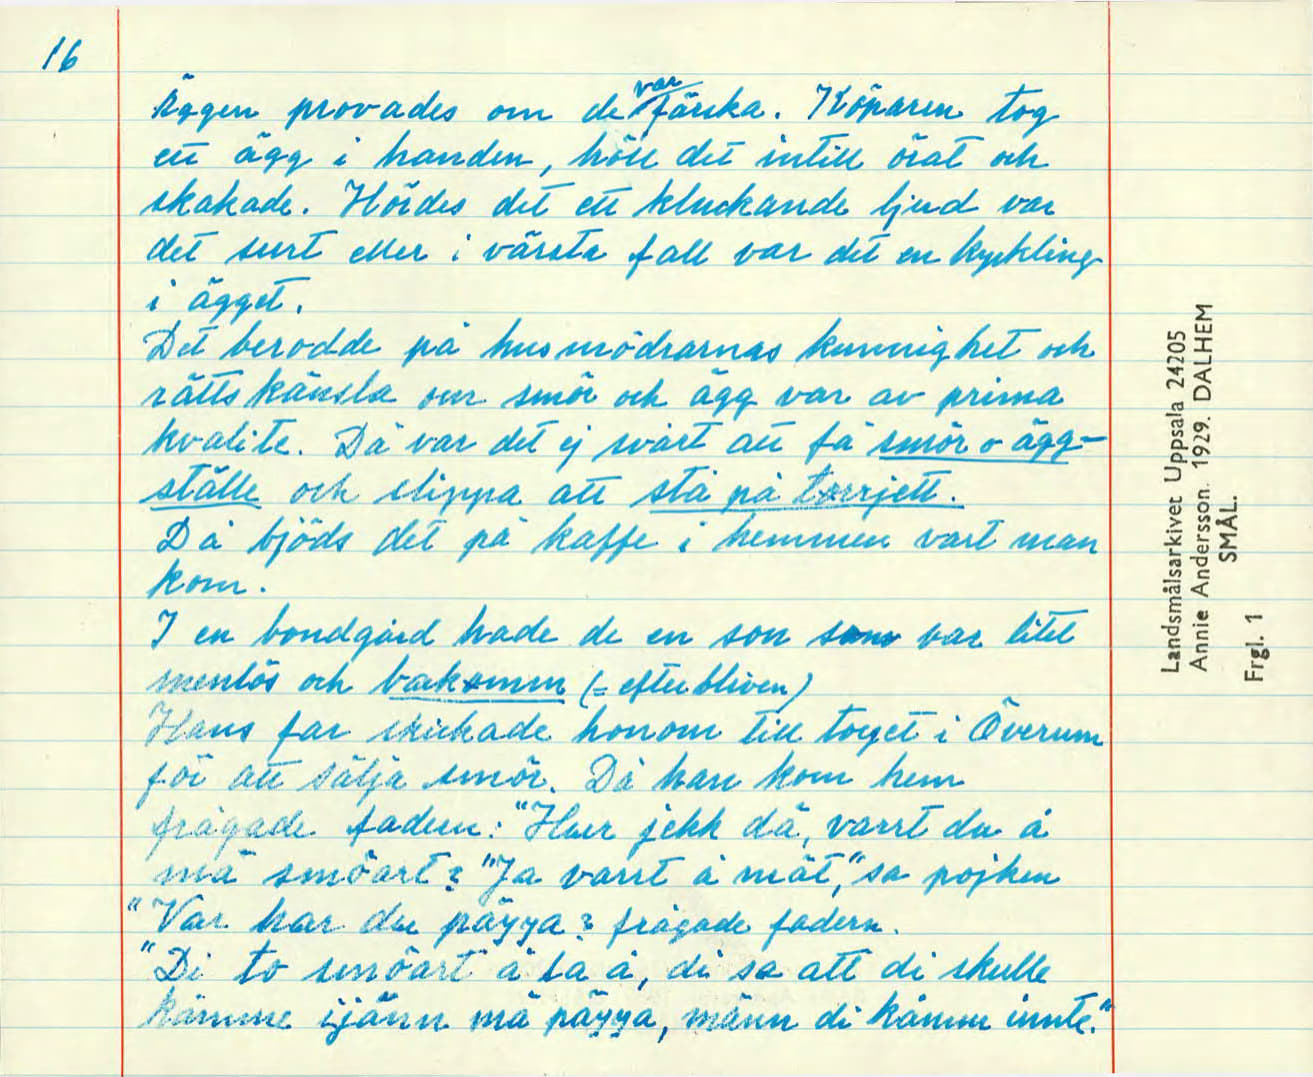 16
Äggen provades om de var färska. Köparen tog
ett ägg i handen, höll det intill örat och
skakade. Hördes det ett kluckande ljud var
det surt eller i värsta fall var det en kyckling
i ägget.
Det berodde på husmödrarnas kunnighet och
rättskänsla om smör och ägg var av prima
kvalite. Då var det ej svårt att få smör o ägg-
ställe och slippa att stå på torrjett.
Då bjöds det på kaffe i hemmen vart man
kom.
I en bondgård hade de en son som var litet
menlös och bakomm (= efterbliven)
Hans far skickade honom till torget i Överum
för att sälja smör. Då han kom hem
frågade fadern: "Hur jekk dä, varrt du å
mä smöart? "Ja varrt å mät," sa pojken
"Var har du päyya? frågade fadern.
"Di to smöart å la å, di sa att di skulle
kåmme ijänn mä päyya, männ di kåmm innte."
Landsmålsarkivet Uppsala 24205
Annie Andersson. 1929. DALHEM
SMÅL.
Frgl. 1